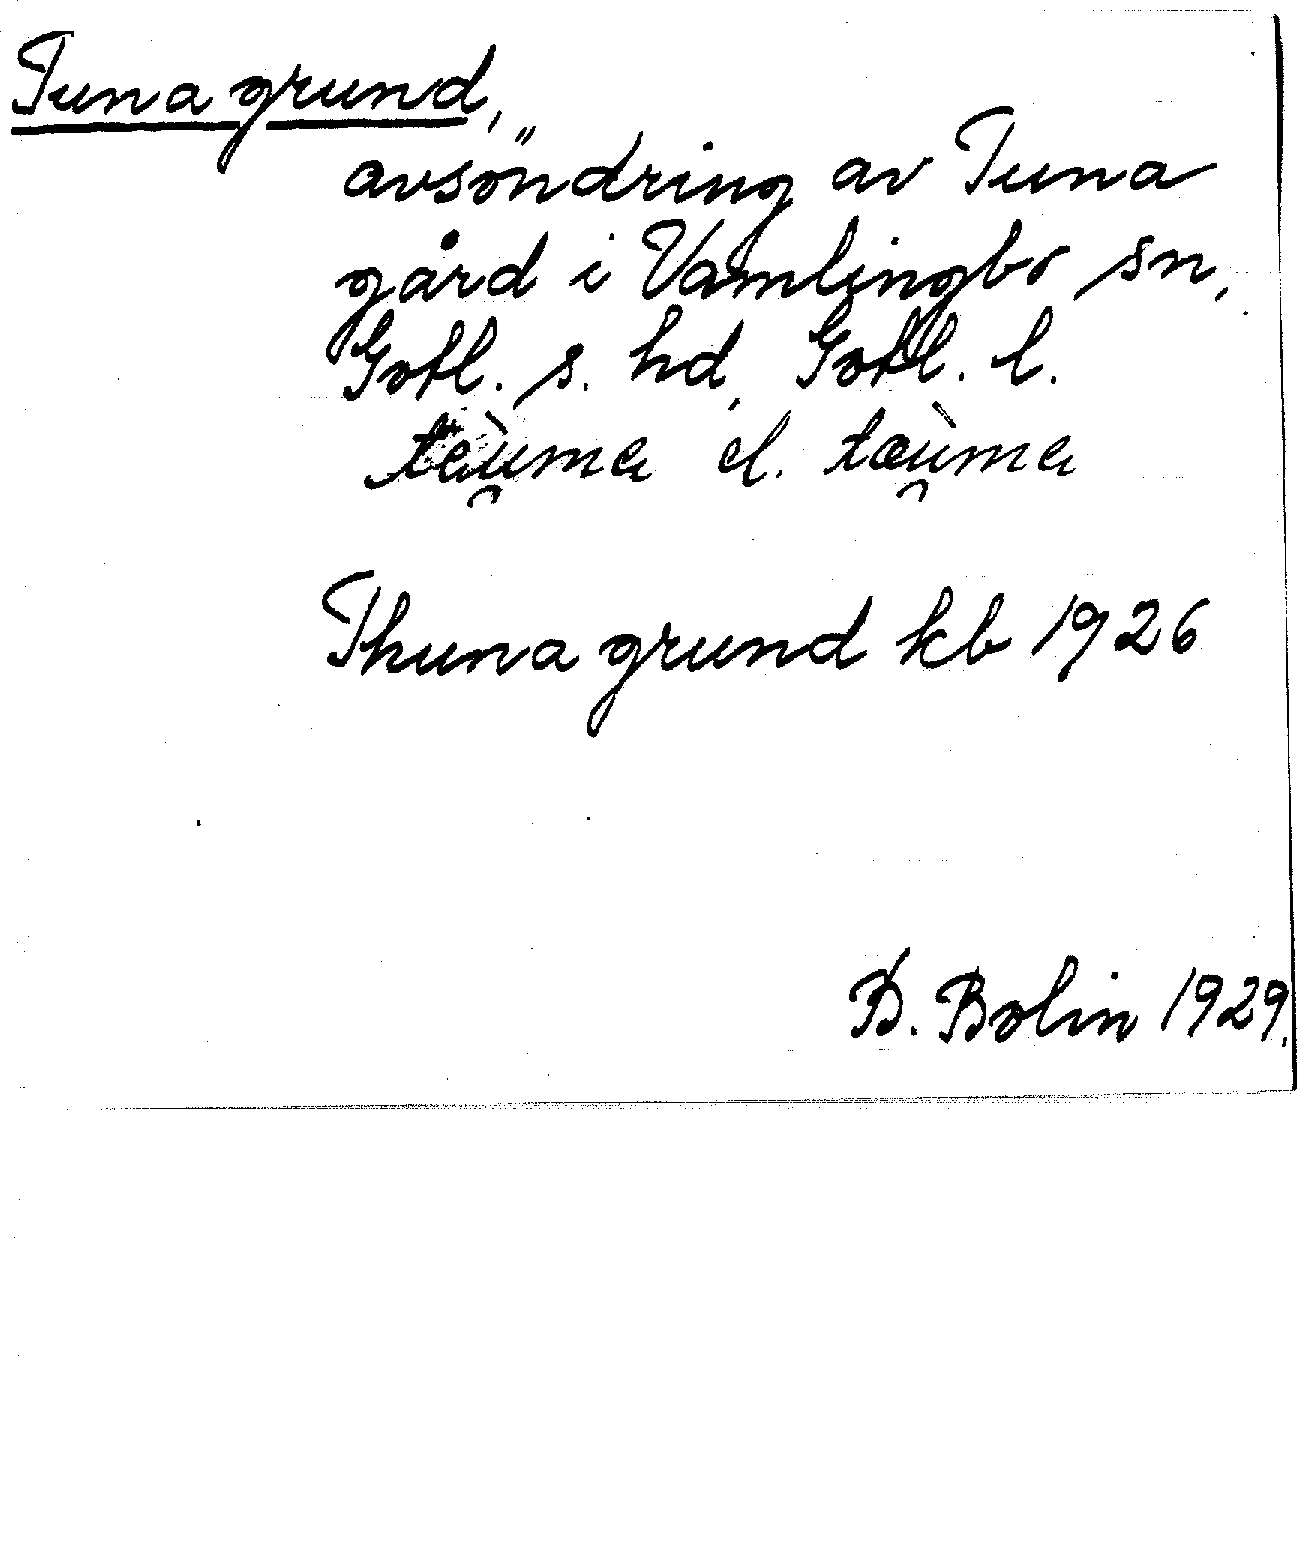 Tuna grund,
avsöndring av Tuna
gård i Vamlingbo sn,
Gotl. s. hd, Gotl. l.
el.
Thuna grund kb 1926
B. Bolin 1929.